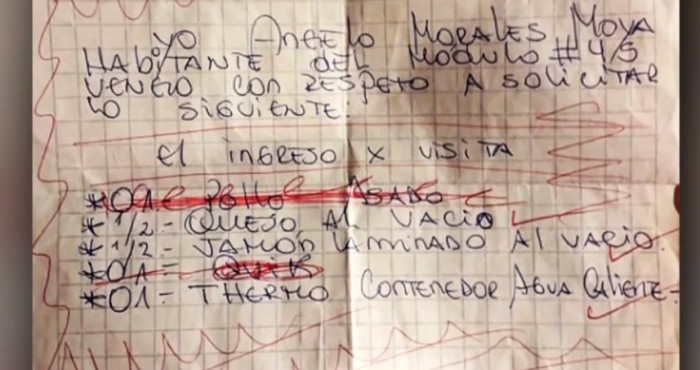 YO ANGELO MORALES MOYA
HABITANTE DEL MODULO # 45
VENGO CON RESPETO A SOLICITAR
LO SIGUIENTE:
El INGRESO X VISITA
*01 - POLLO ASADO
* 1/2 - QUESO AL VACIO
* 1/2 - JAMÓN LAMINADO Al VACIO.
*01 - QUIK
*01 - THERMO CONTENEDOR AGUA CALIENTE -